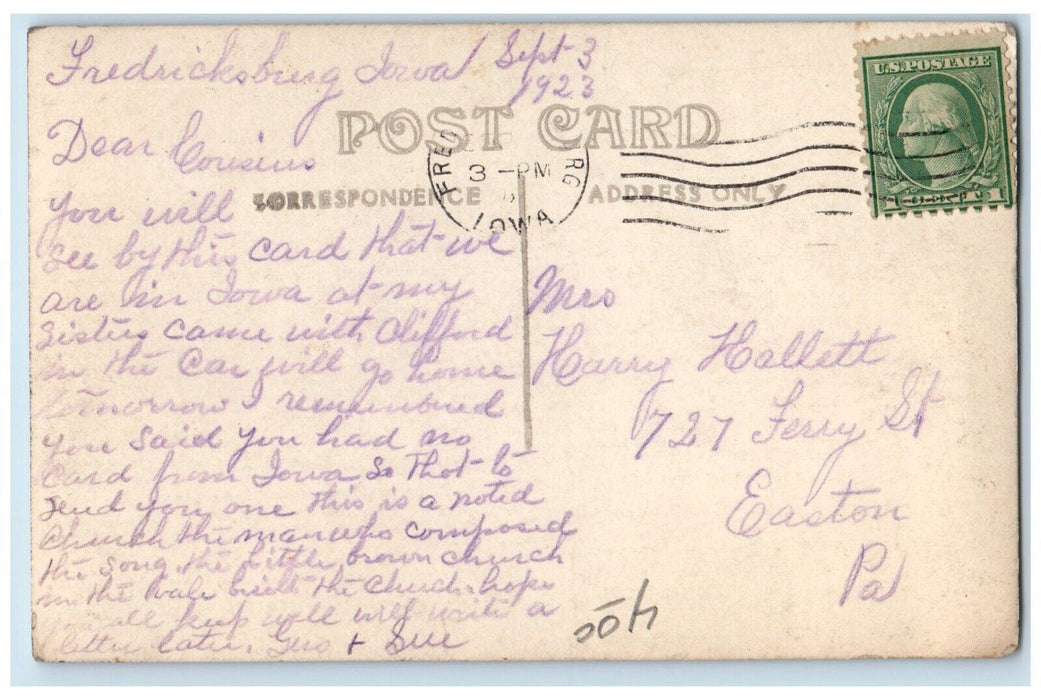 Fredricksburg Iowa Sept 3
1923
U.S. POSTAGE
POST CARD
Dear Cousins
FRED RG
3 -PM
IOWA
CORRESPONDENCE
ADDRESS ONLY
1 CENT 1
You will
see by this card that we
are in Iowa at my
Sisters came with Clifford
in the Car will go home
tomorrow I remembered
you said you had no
Card from Iowa so thot to
send you one this is a noted
Church the man who composed
the song the little brown church
in the vale built the Church. hope
you all keep well will write a
letter later. Gus + Sue
Mrs
Harry Hallett
727 Ferry St
Easton
Pa